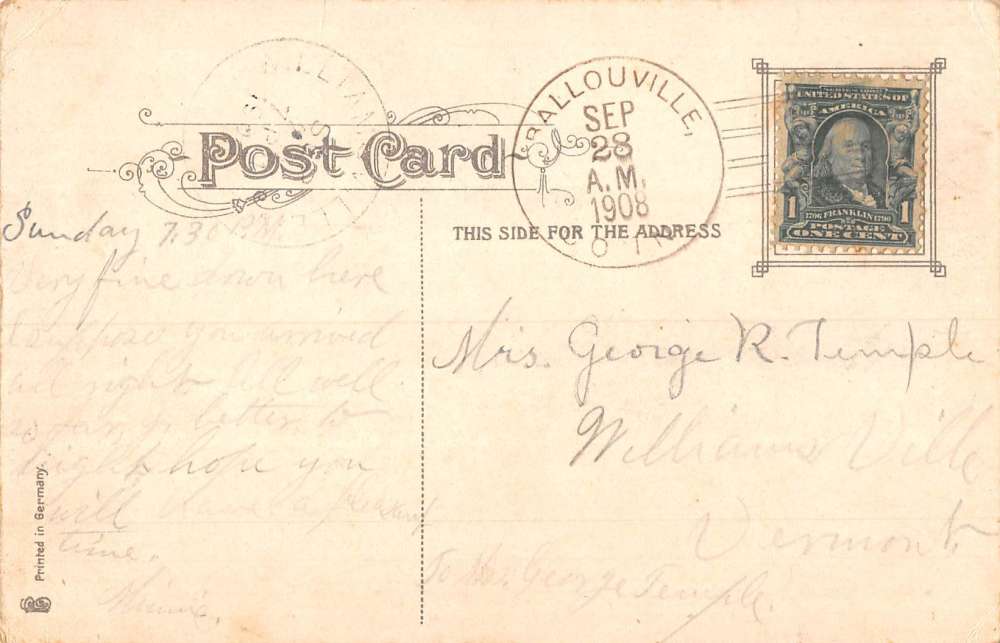 POST CARD
BALLOUVILLE,
SEP
28
A.M.
1908
UNITED STATES OF
AMERICA
1 1706 FRANKLIN 1790 1
POSTAGE
ONE CENT
THIS SIDE FOR THE ADDRESS
Sunday 7.30 P.M.
Very fine down here
Suppose you arrived
all right All well
so far is better to
night hope you
will have a pleasant
time.
Minnie.
Mrs. George R. Temple
Williams Ville
Vermont
To Mrs. George Temple.
Printed in Germany.